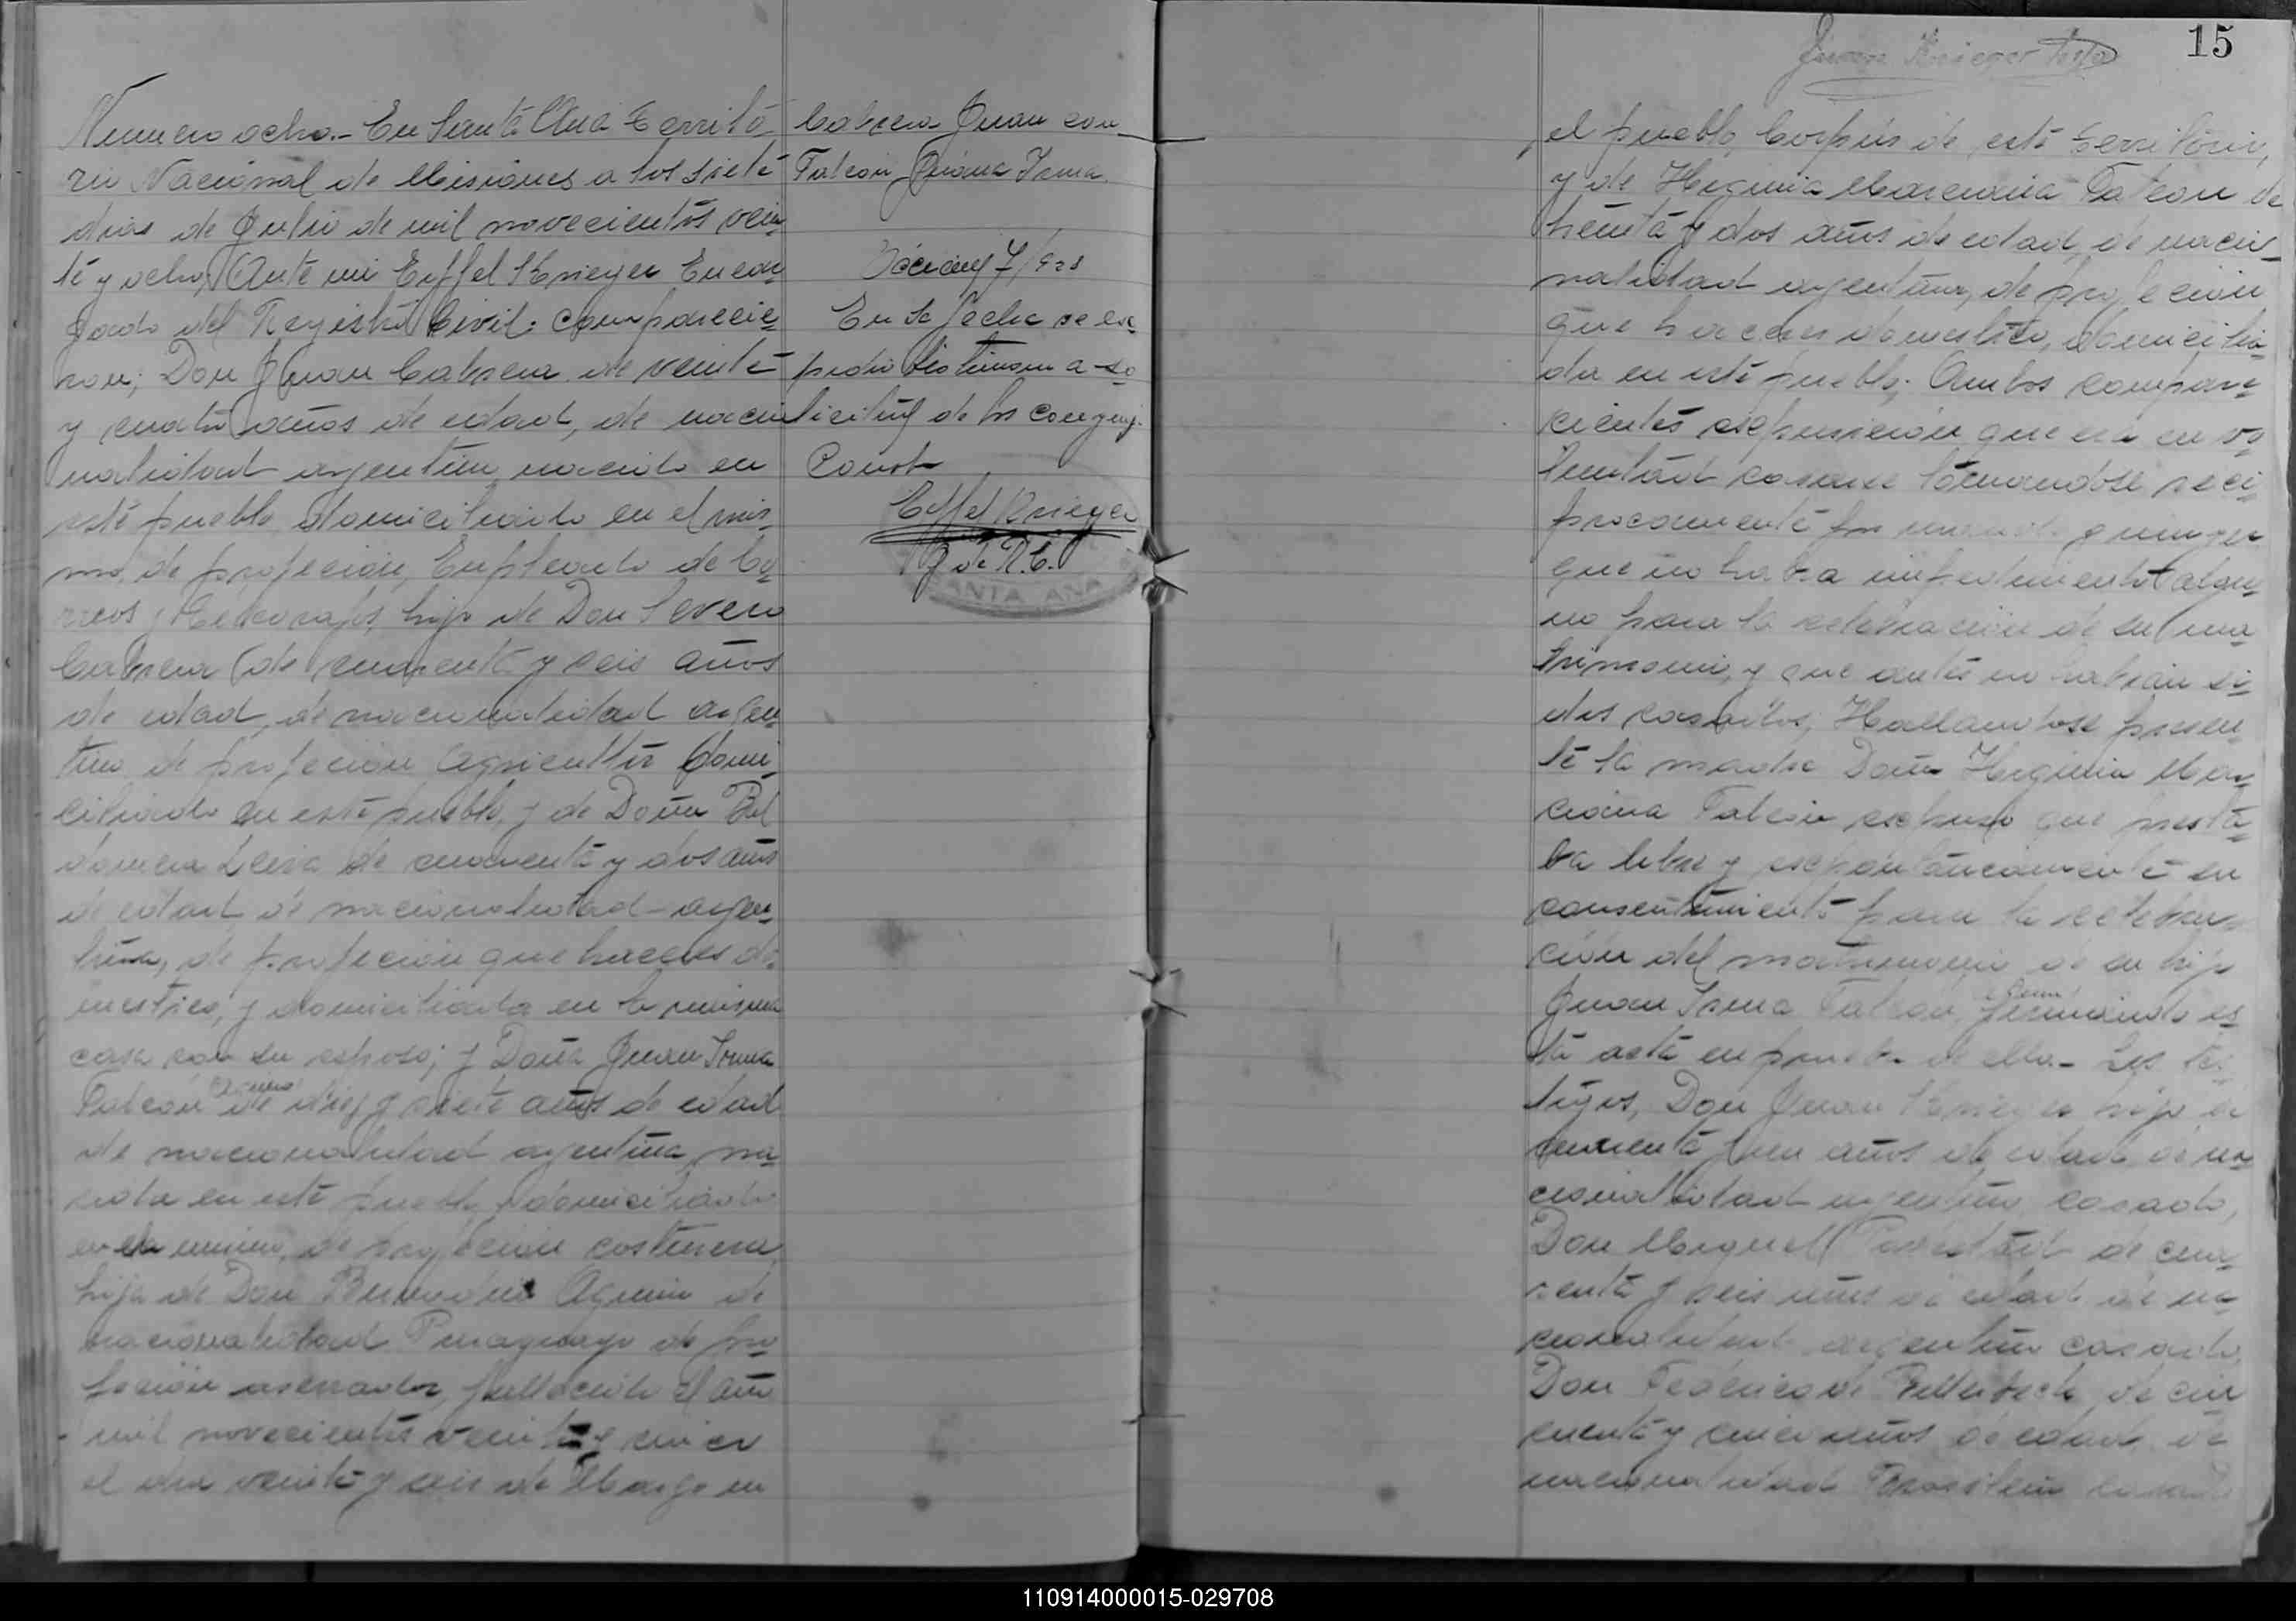 Numero ocho.- En Santa Ana Territo
rio Nacional de Misiones a los siete
dias de Julio de mil novecientos vein
te y ocho, Ante mi Eiffel Krieger Encar
gado del Registro Civil: comparecie
ron; Don Juan Cabrera de veinte
y cuatro años de edad, de nacio
nalidad argentino nacido en
este pueblo domiciliado en el mis
mo, de profecion, Empleado de Co
rreos y Telegrafos, hijo de Don Severo
Cabrera de cuarenta y seis años
de edad, de nacionalidad argen
tino de profecion Agricultor domi
ciliado en este pueblo, y de Doña
Leiva de cuarenta y dos años
de edad, de nacionalidad argen
tina, de profecion que haceres do
mestico, y domiciliada en la misma
casa con su esposo; y Doña Juana Irma
Falcon Aquino de diez y siete años de edad
de nacionalidad argentina, na
cida en este pueblo, domiciliada
en el mismo, de profecion costurera,
hija de Don Aquino de
nacionalidad Paraguayo de pro
fecion aserrador, fallecido el año
mil novecientos veinte y cinco
el dia veinte y seis de Marzo en
Cabrera Juan con
Falcon Juana Irma
7/928
En la fecha se ex
pidio testimonio a so
licitud de los conyuj.
Const
Eiffel Krieger
J de R.C.
SANTA ANA
15
Juan Krieger hijo
el pueblo Corpus de este territorio,
y de Higinia Marciana Falcon de
treinta y dos años de edad, de nacio
nalidad argentina, de profecion
que haceres domestico, domicilia
da en este pueblo; Ambos compare
cientes espusieron que era su vo
luntad casarse tomandose reci
procamente por marido y mujer
que no habia impedimento algu
no para la celebracion de su ma
trimonio, y que antes no habian si
dos casados; Hallandose presen
te la madre Doña Higinia Mar
ciana Falcon espuso que presta
ba libre y espontaneamente su
consentimiento para la celebra
cion del matrimonio de su hija
Juana Irma Falcon, firmando es
ta acta en prueba de ello.- Los tes
tigos, Don Juan Krieger hijo de
cuarenta y un años de edad de na
cionalidad argentino casado,
Don Miguel de cua
renta y seis años de edad de na
cionalidad argentino casado,
Don Federico de cin
cuenta y cinco años de edad de
nacionalidad Brasilera casado
110914000015-029708